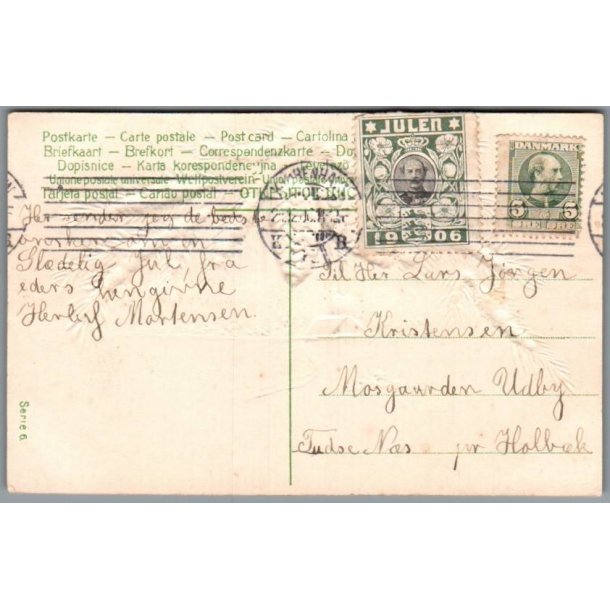 Postkarte - Carte postale - Post card - Cartolina
Briefkaart - Brefkort - Correspondenzkarte - Do
Dopisnice - Karta korespondencyjna - Levelező
Union postale universelle Weltpostverein
Tarjeta postal - Carido postal
JULEN
1906
DANMARK
5 5
KJØBENHAVN
K B
Her sender jeg de beds
ønsker om en
Glædelig Jul fra
eders hengivne
Herluf Mortensen.
Til Her Lars Jörgen
Kristensen
Mosgaarden Udby
Tudse Næs pr Holbæk
Serie 6.